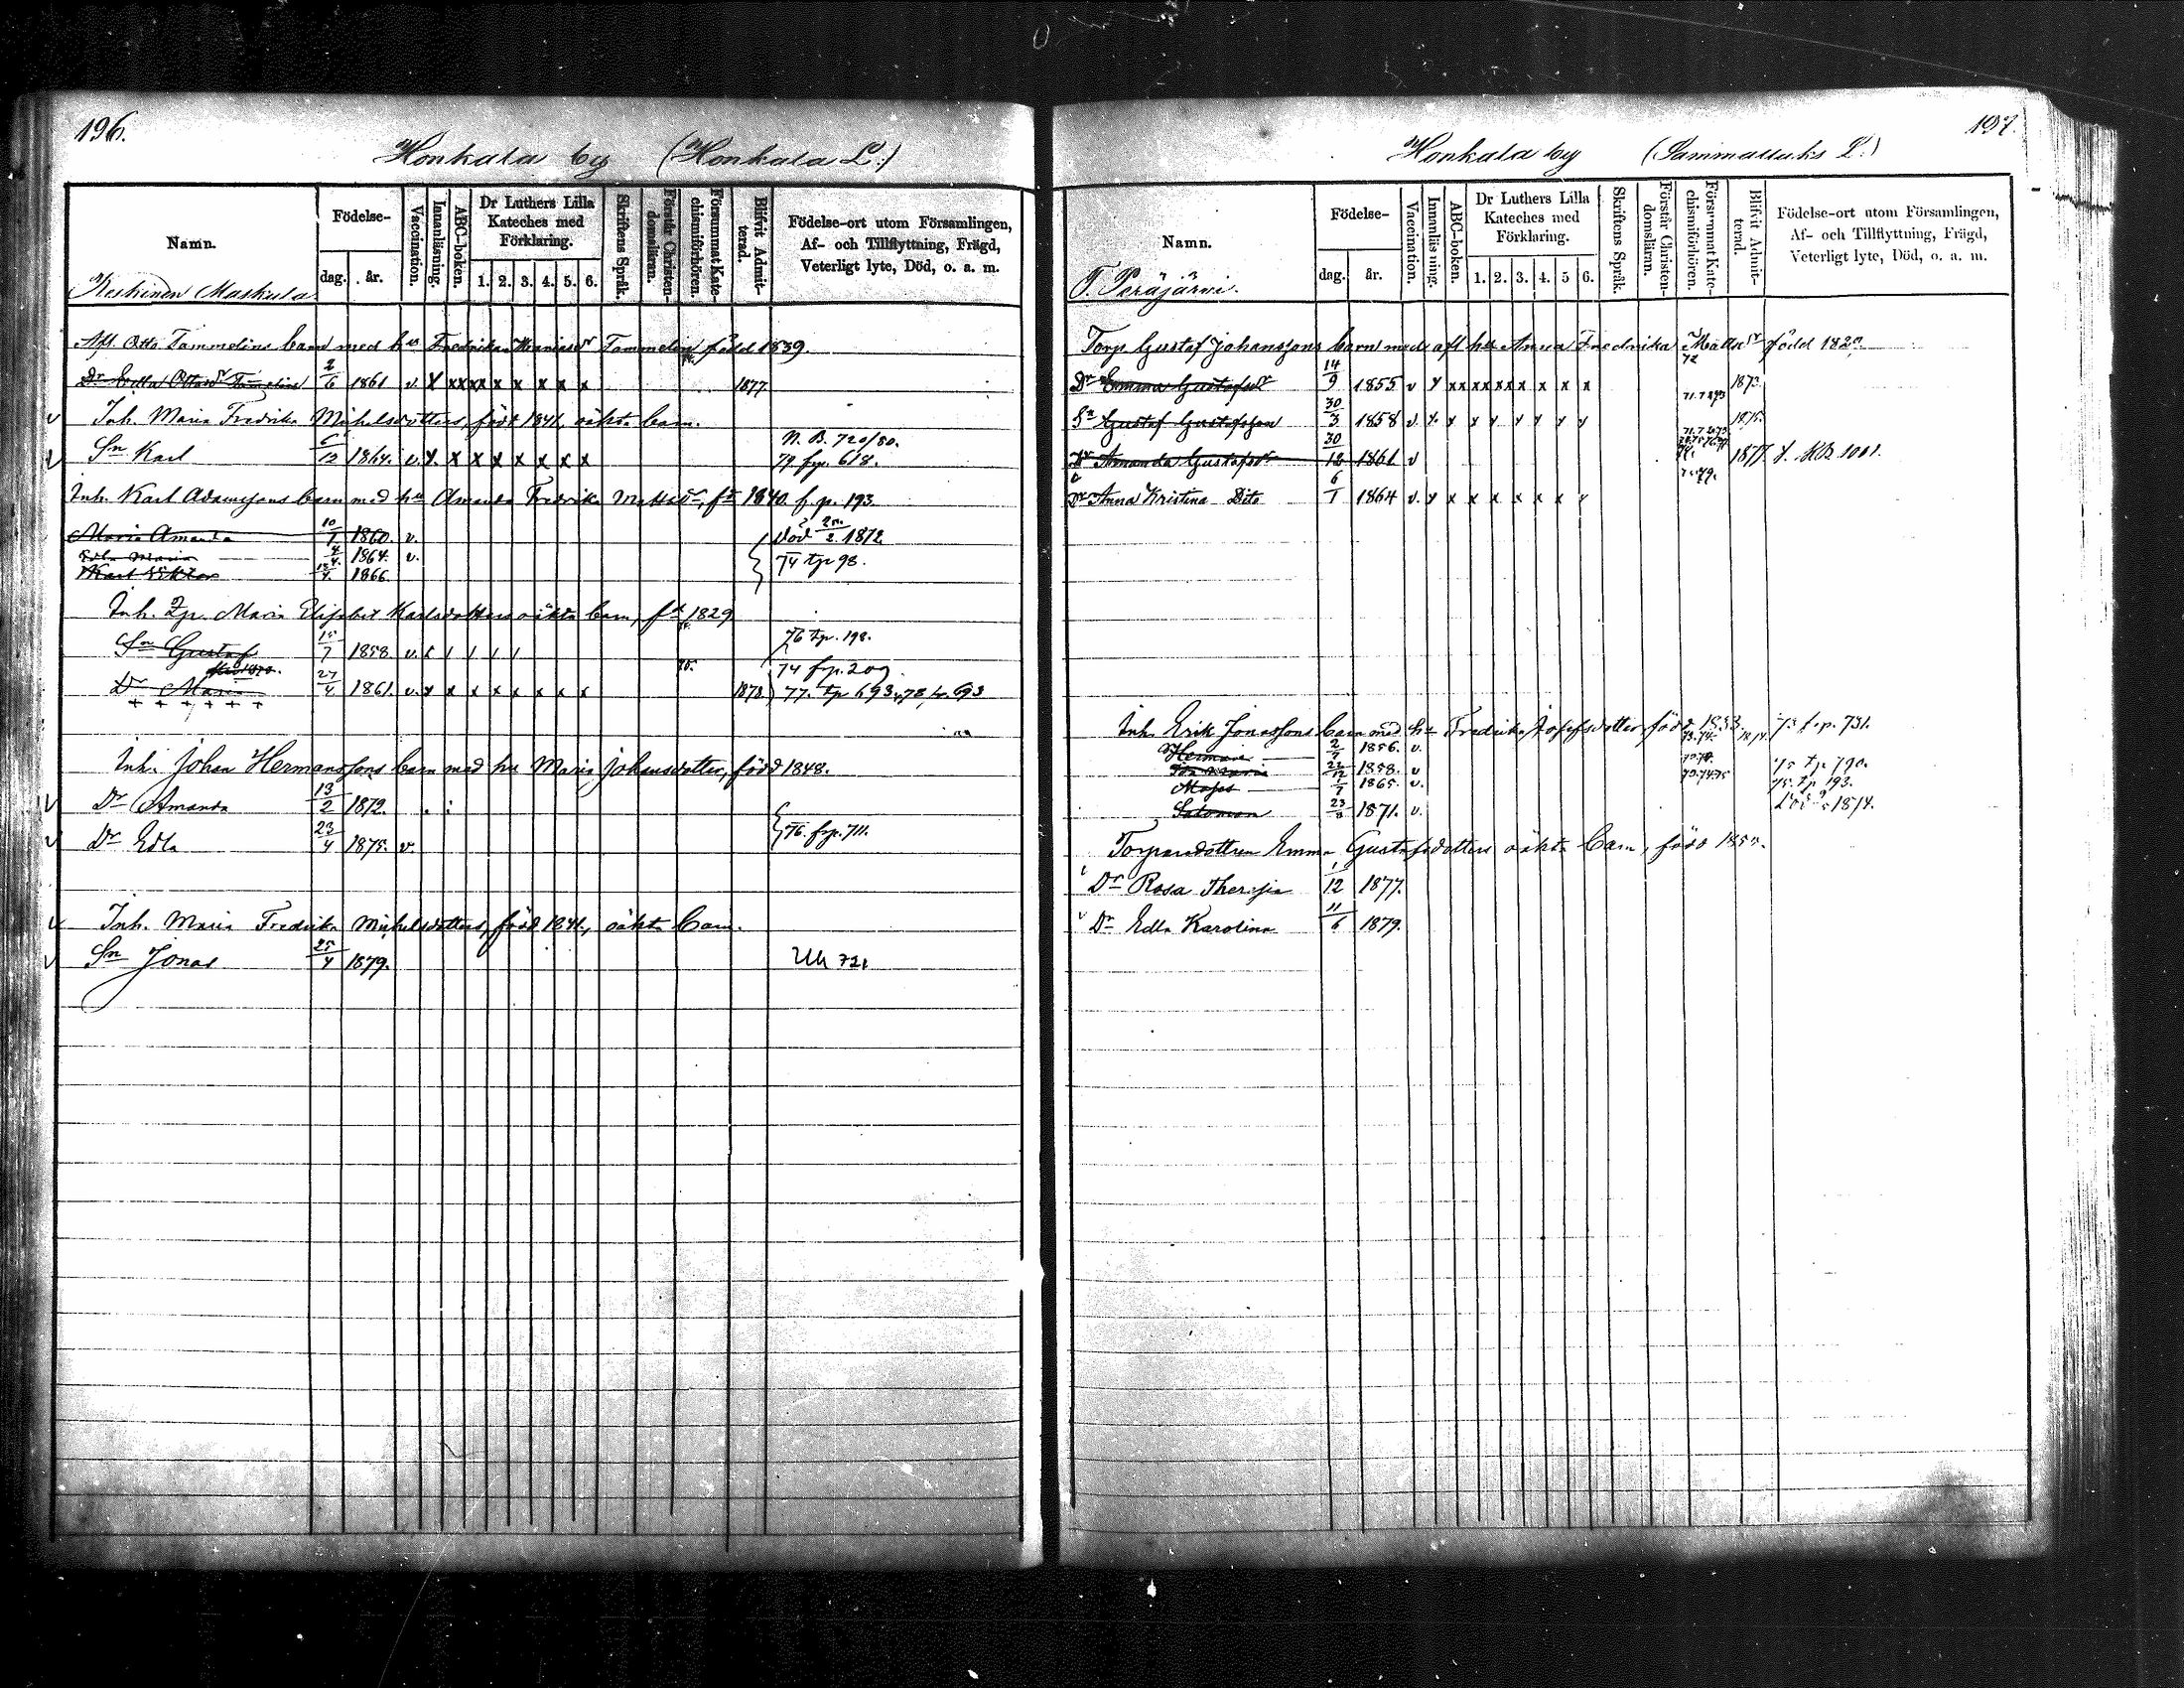 196.
Honkala by (Honkala L:)
Namn.
Födelse-
dag. år.
Vaccination.
Innanläsning.
ABC-boken.
Dr Luthers Lilla Kateches med Förklaring.
1. 2. 3. 4. 5. 6.
Skriftens Språk.
Förstår Christendomsläran.
Försummat Katechismiförhören.
Blifvit Admitterad.
Födelse-ort utom Församlingen,
Af- och Tillflyttning, Frägd,
Veterligt lyte, Död, o. a. m.
Keskinen Maskula
Afl. Otto Tammelins barn med hu Fredrika Tammelin född 1839.
Dr Edla Ottosdr Tammelin 2/6 1861 v. x x x x x x x x x 1877
v Inh. Maria Fredrika Mickelsdotters, född 1841, oäkta barn.
v Sn Karl 6/12 1864. v. x. x x x x x x x N. B. 720/80.
79 fr p. 618.
Inh. Karl Adamssons barn med hu Amanda Fredrika Mattsdr, fd 1840. f. p. 193.
Maria Amanda 10/1 1860. v. död 2/2 1872
Edla Maria 4/4 1864. v. 74 tp 98.
Karl Viktor 4. 1866
Inh. Maria Elisabet Karlsdotters oäkta barn, fd 1829
Sn Gustaf 15/7 1858. v. / / / / / 76 tp. 198.
74 fr p. 209
Dr Maria 27/4 1861. v. x x x x x x x x 1878 77. tp 693, 78 fr. 693
+ + + + + +
Inh. Johan Hermanssons barn med hu Maria Johansdotter, född 1848.
v Dr Amanda 13/2 1872.
v Dr Edla 23/4 1875. v. 76. fr p. 711.
v Inh. Maria Fredrika Mickelsdotters, född 1841, oäkta barn.
v Sn Jonas 25/4 1879. Uh 721
197.
Honkala by (Sammalluks L:)
Namn.
Födelse-
dag. år.
Vaccination.
Innanläsning.
ABC-boken.
Dr Luthers Lilla Kateches med Förklaring.
1. 2. 3. 4. 5 6.
Skriftens Språk.
Förstår Christendomsläran.
Försummat Katechismiförhören.
Blifvit Admitterad.
Födelse-ort utom Församlingen,
Af- och Tillflyttning, Frägd,
Veterligt lyte, Död, o. a. m.
T. Peräjärvi.
Torp. Gustaf Johanssons barn med afl hu Anna Fredrika Mattsdr född 1820
Dr Emma Gustafsdr 14/9 1855 v x x x x x x x x x 72 1873.
Sn Gustaf Gustafsson 30/3 1858 v. x. x x x x x x x 1875.
Dr Amanda Gustafsdr 30/12 1861 v 1877 f. KB 1001.
Dr Anna Kristina Dito 6/1 1864 v. x x x x x x x x
Inh. Erik Jonassons barn med hu Fredrika Josefsdotter, född 1833 73 f. p. 731.
Herman 2/7 1856. v.
Ida Maria 22/12 1858. v 75 tp 790.
Moses 1/7 1865. v. 75. tp 193.
Salomon 23/8 1871. v. 1874.
Torparedottren Emma Gustafsdotters oäkta barn, född 1855.
Dr Rosa Theresia 1/12 1877.
v Dr Edla Karolina 11/6 1879.